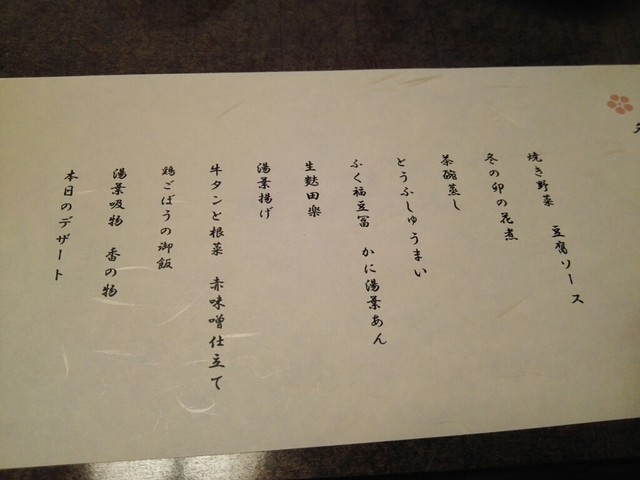 焼き野菜　豆腐ソース
冬の卯の花煮
茶碗蒸し
とうふしゅうまい
ふく福豆冨　かに湯葉あん
生麩田楽
湯葉揚げ
牛タンと根菜　赤味噌仕立て
鶏ごぼうの御飯
湯葉吸物　香の物
本日のデザート